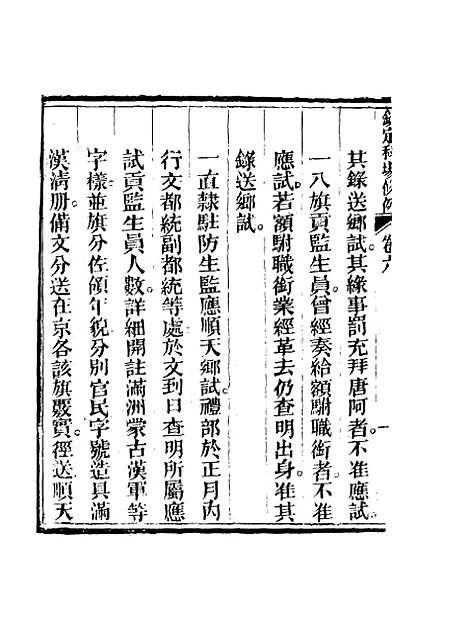 欽定科場條例 卷六
其錄送鄉試其緣事罰充拜唐阿者不准應試
一八旗貢監生員曾經奏給額駙職銜者不准
應試若額駙職銜業經革去仍查明出身准其
錄送鄉試
一直隸駐防生監應順天鄉試禮部於正月內
行文都統副都統等處於文到日查明所屬應
試貢監生員人數詳細開註滿洲蒙古漢軍等
字樣並旗分佐領年貌分別官民字號造具滿
漢清册備文分送在京各該旗覈實徑送順天